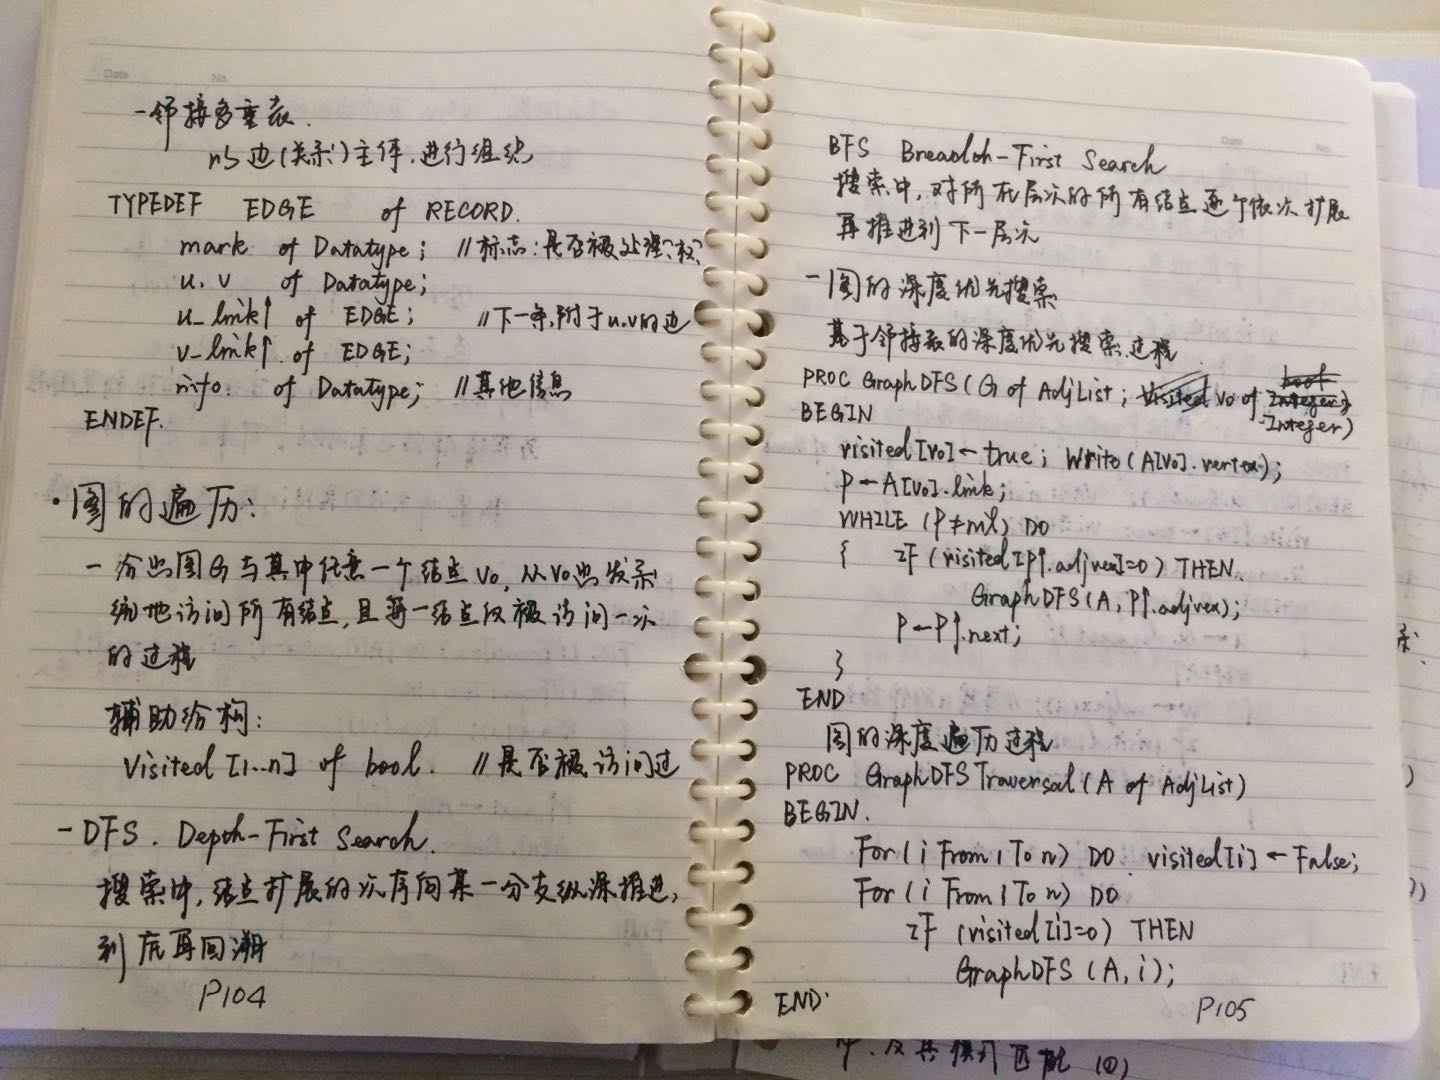 Date No.
一邻接多重表.
以边(关系)主体.进行组织
TYPEDEF EDGE of RECORD.
mark of Datatype; //标志:是否被处理、权、
u. v of Datatype;
u_link↑ of EDGE; //下一条,附于u.v的边
v_link↑. of EDGE;
info. of Datatype; //其他信息
ENDEF.
·图的遍历:
- 给出图G与其中任意一个结点v0, 从v0出发系
统地访问所有结点,且每一结点仅被访问一次
的过程
辅助结构:
Visited [1..n] of bool. //是否被访问过
- DFS. Depth-First Search.
搜索中,结点扩展的次序向某一分支纵深推进,
到底再回溯
P104
Date No.
BFS Breadth-First Search
搜索中,对所在层次的所有结点逐个依次扩展
再推进到下一层次
一图的深度优先搜索
基于邻接表的深度优先搜索过程
PROC GraphDFS(G of AdjList; v0 of Integer)
BEGIN
visited[v0]←true; Write(A[v0].vertex);
P←A[v0].link;
WHILE (P≠nil) DO
{ IF (visited[P↑.adjvex]=0) THEN.
GraphDFS(A, P↑.adjvex);
P←P↑.next;
}
END
图的深度遍历过程
PROC GraphDFSTraversal(A of AdjList)
BEGIN.
For(i From 1 To n) DO visited[i]←False;
For(i From 1 To n) DO
IF (visited[i]=0) THEN
GraphDFS(A, i);
END.
P105